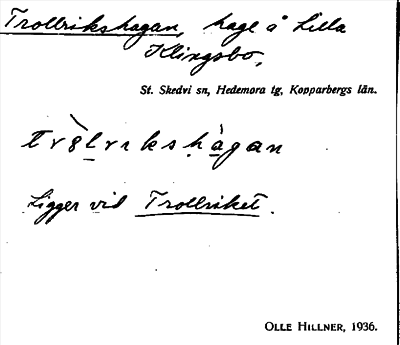 Trollrikshagan, hage å Lilla
Klingsbo,
St. Skedvi sn, Hedemora tg, Kopparbergs län.
tr8̀lrɪkshàgan
Ligger vid Trollriket.
OLLE HILLNER, 1936.